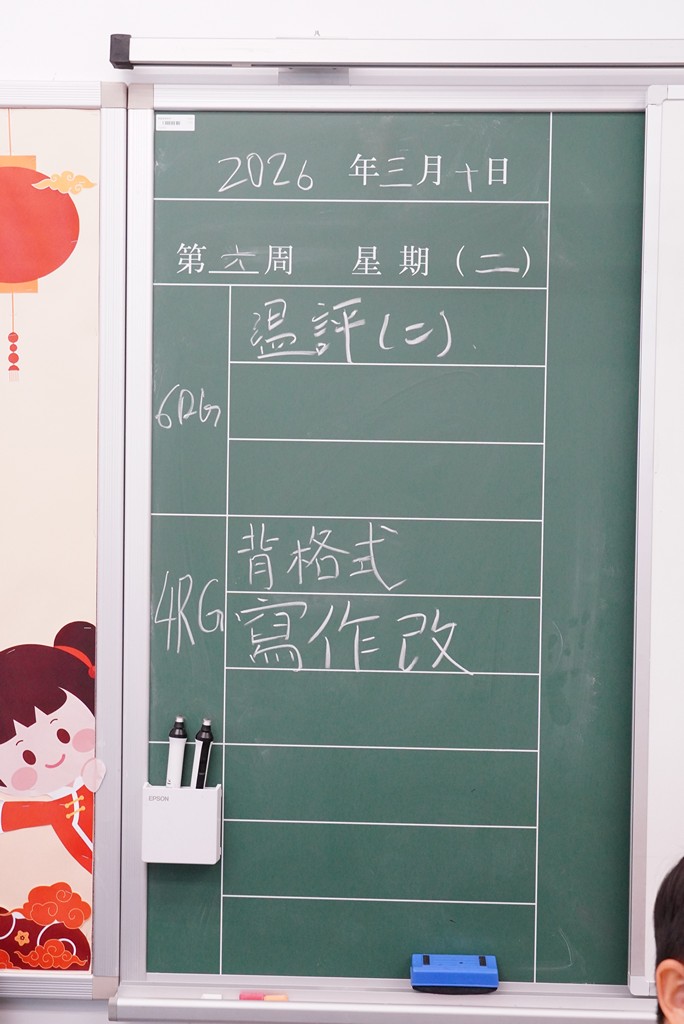 2026 年三月十日
第六周 星期(二)
6RG
温評(二).
4RG
背格式
寫作改
EPSON